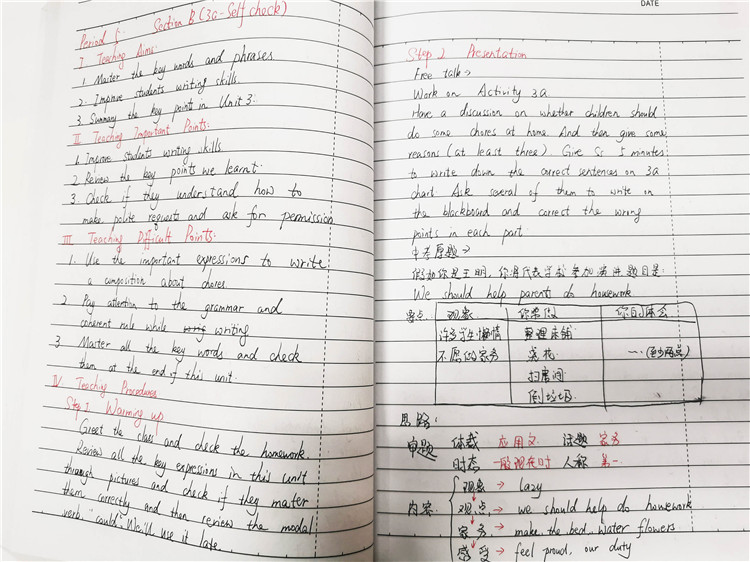 DATE
Period 5: Section B (3a-Self check)
I Teaching Aims:
1. Master the key words and phrases
2. Improve students writing skills.
3. Summary the key points in Unit 3.
II Teaching Important Points:
1. Improve students writing skills
2. Review the key points we learnt.
3. Check if they understand how to
make polite requests and ask for permission
III Teaching Difficult Points:
1. Use the important expressions to write
a composition about chores.
2 Pay attention to the grammar and
coherent rule while writing
3 Master all the key words and check
them at the end of this unit.
IV Teaching Procedures
Step 1 Warming up
Greet the class and check the homework.
Review all the key expressions in this unit
through pictures and check if they master
them correctly and then review the modal
verb "could". We'll use it late.
Step 2 Presentation
Free talk >
Work on Activity 3a
Have a discussion on whether children should
do some chores at home. And then give some
reasons (at least three) Give Ss 5 minutes
to write down the correct sentences on 3a
chart. Ask several of them to write on
the blackboard and correct the wrong
points in each part
中考原题 >
假如你是王明,你将代表学校参加演讲,题目是:
We should help parents do housework
要点: 观察 你常做 你的体会
许多学生懒惰 整理床铺
不愿做家务 浇花 … (至少两点)
扫房间
倒垃圾
思路:
审题 体裁 应用文 话题 家务
时态 一般现在时 人称 第一
内容: 观察 → lazy
观点 → we should help do housework
家务 → make the bed, water flowers
感受 → feel proud, our duty